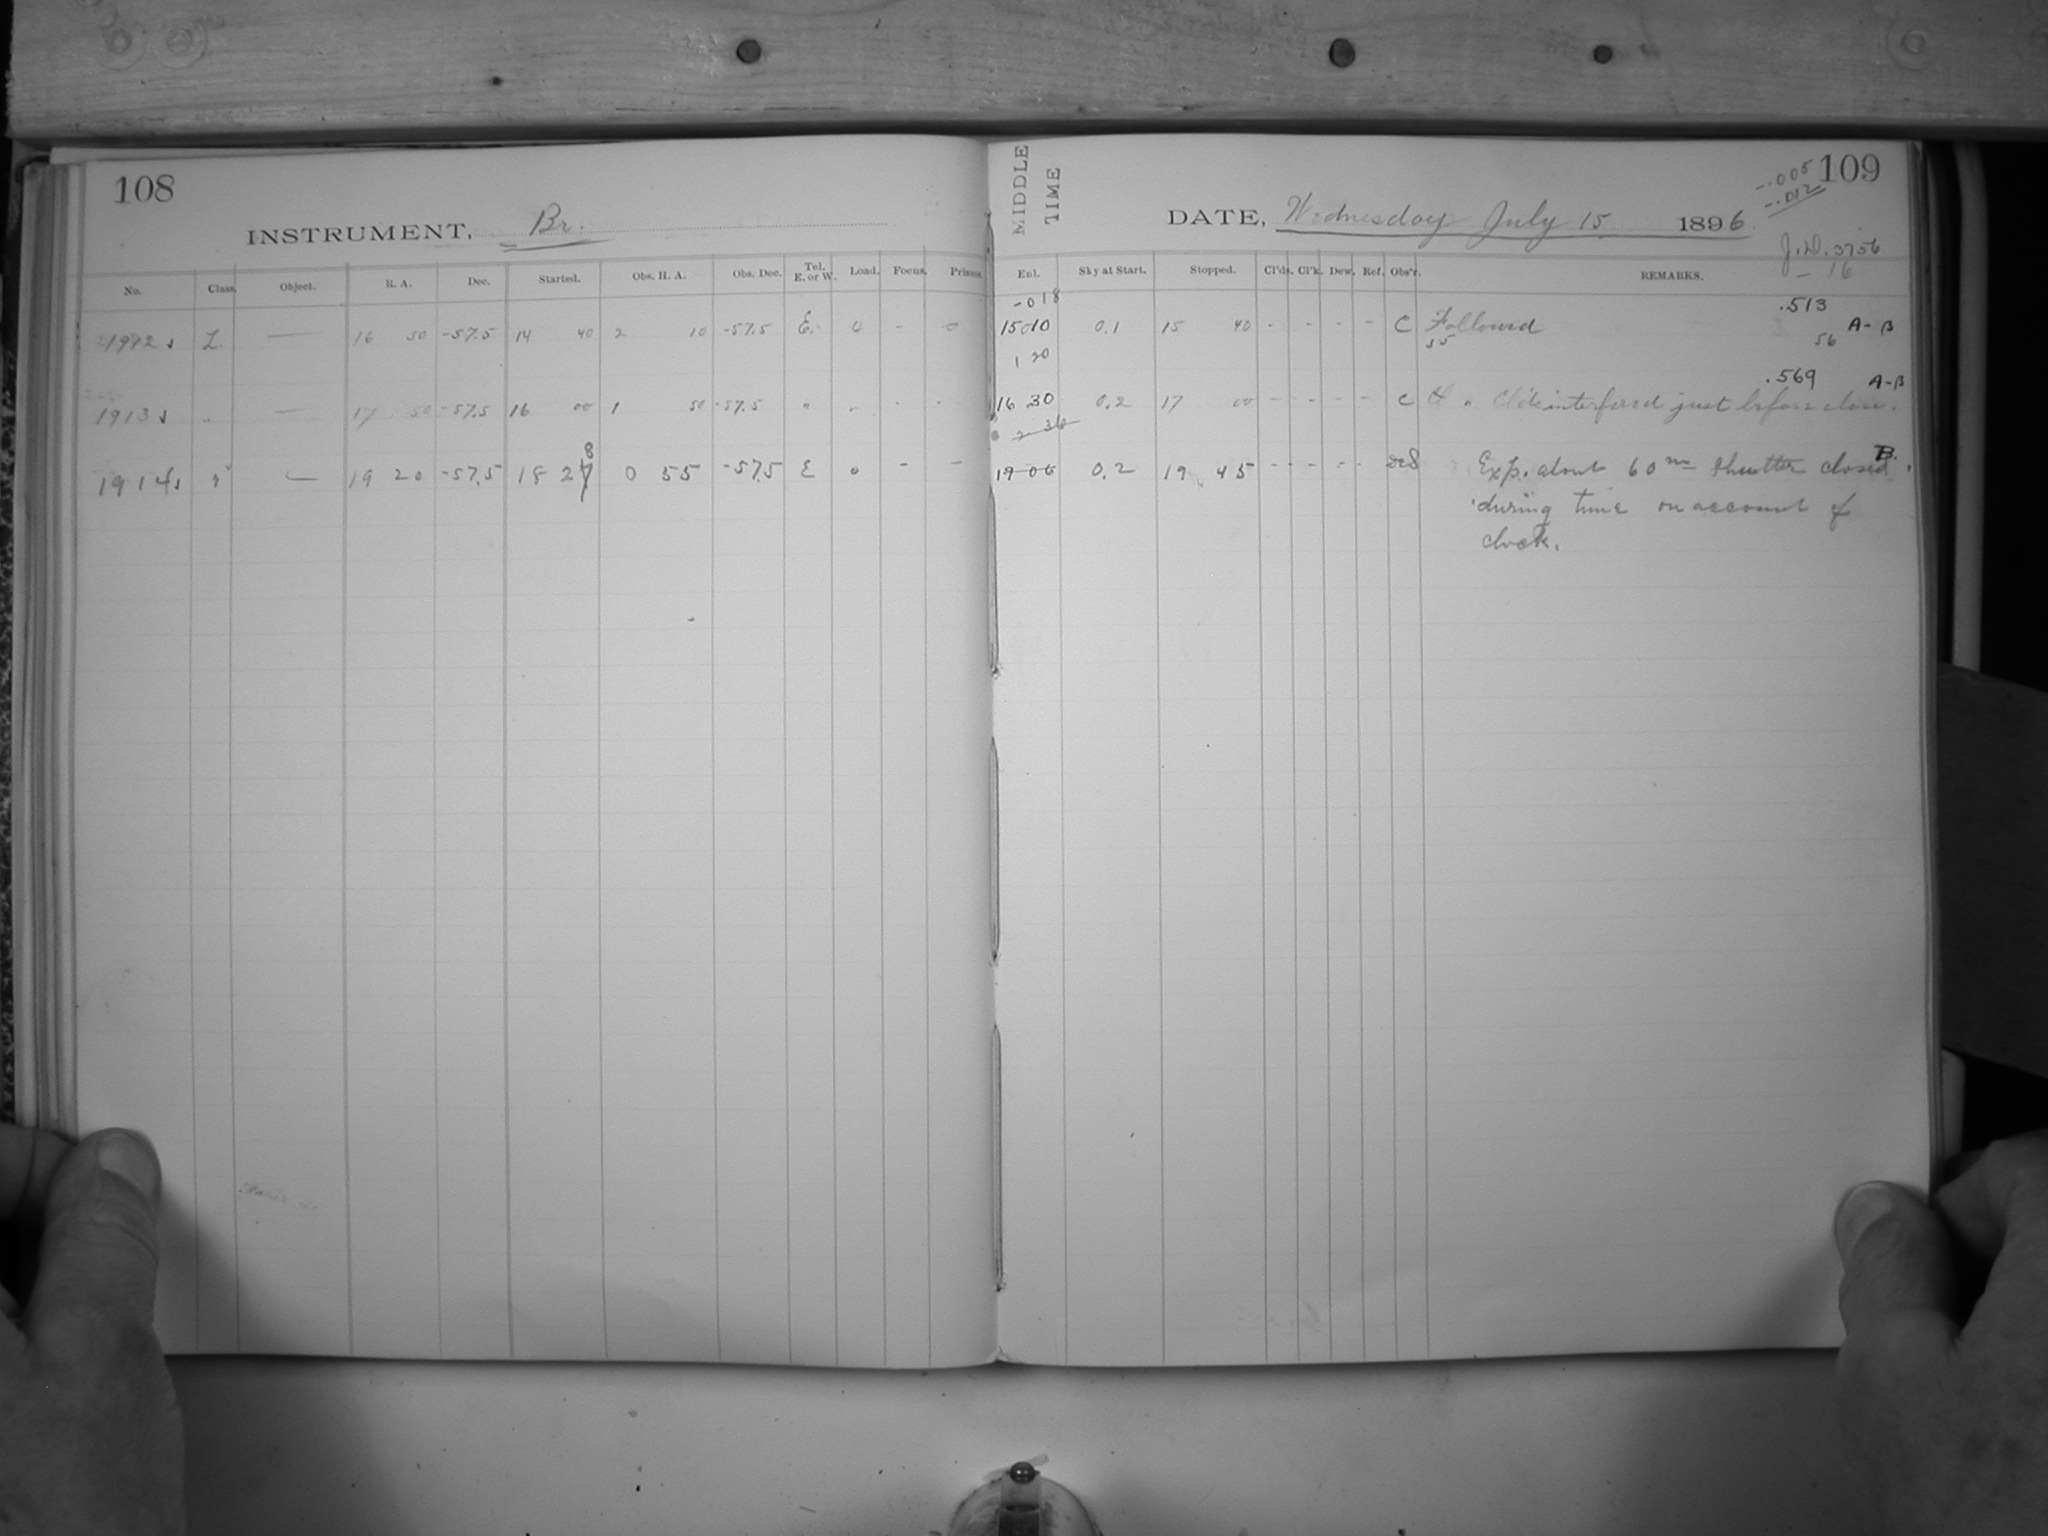 108
INSTRUMENT, Br.
No. Class. Object. R. A. Dec. Started. Obs. H. A. Obs. Dec. Tel. E. or W. Load. Focus. Prisms.
L. — 16 50 -57.5 14 40 2 10 -57.5 E. 0 - 0
1913 " — 17 50 -57.5 16 00 1 50 -57.5 " " - -
1914 " — 19 20 -57.5 18 27 8 0 55 -57.5 E 0 - -
109
MIDDLE TIME
DATE, Wednesday July 15 1896
-.005
-.012
J.D. 3756
- 16
Enl. Sky at Start. Stopped. Cl'ds. Cl'k. Dew. Ref. Obs'r. REMARKS.
-018 .513
15 10 0.1 15 40 - - - - C Followed A-B
55 56
1 20
.569 A-B
16 30 0.2 17 00 - - - - C " Cl'ds interfered just before close.
2 36
19 06 0.2 19 45 - - - - Exp. about 60m Shutter closed B.
during time on account of
clock.